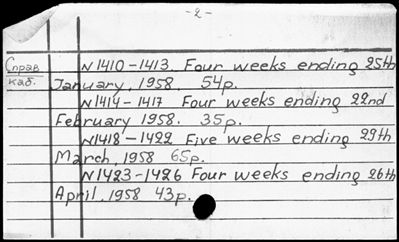 -2-
Справ N1410-1413. Four weeks ending 25th
каб. January, 1958. 54p.
N1414-1417 Four weeks ending 22nd
February 1958. 35p.
N1418-1422 Five weeks ending 29th
March, 1958 65p.
N1423-1426 Four weeks ending 26th
April, 1958 43p.